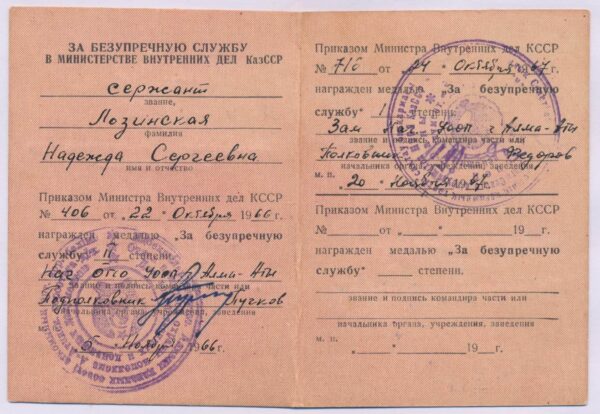 ЗА БЕЗУПРЕЧНУЮ СЛУЖБУ
В МИНИСТЕРСТВЕ ВНУТРЕННИХ ДЕЛ КазССР
сержант
звание,
Лозинская
фамилия
Надежда Сергеевна
имя и отчество
Приказом Министра Внутренних дел КССР
№ 406 от „22" Октября 1966 г.
награжден медалью „За безупречную
службу" II степени.
Нач ОТО УООП г Алма-Аты
звание и подпись командира части или
Подполковник Пучков
начальника органа, учреждения, заведения
м. п. 5 Ноября 1966 г.
Приказом Министра Внутренних дел КССР
№ 716 от „24" Октября 1967 г.
награжден медалью „За безупречную
службу" I степени.
Зам Нач УООП г Алма-Аты
звание и подпись командира части или
Полковник Федоров
начальника органа, учреждения, заведения
м. п. „20" ноября 1967 г.
Приказом Министра Внутренних дел КССР
№ от „ " 19 г.
награжден медалью „За безупречную
службу" степени.
звание и подпись командира части или
начальника органа, учреждения, заведения
м. п. „ " 19 г.